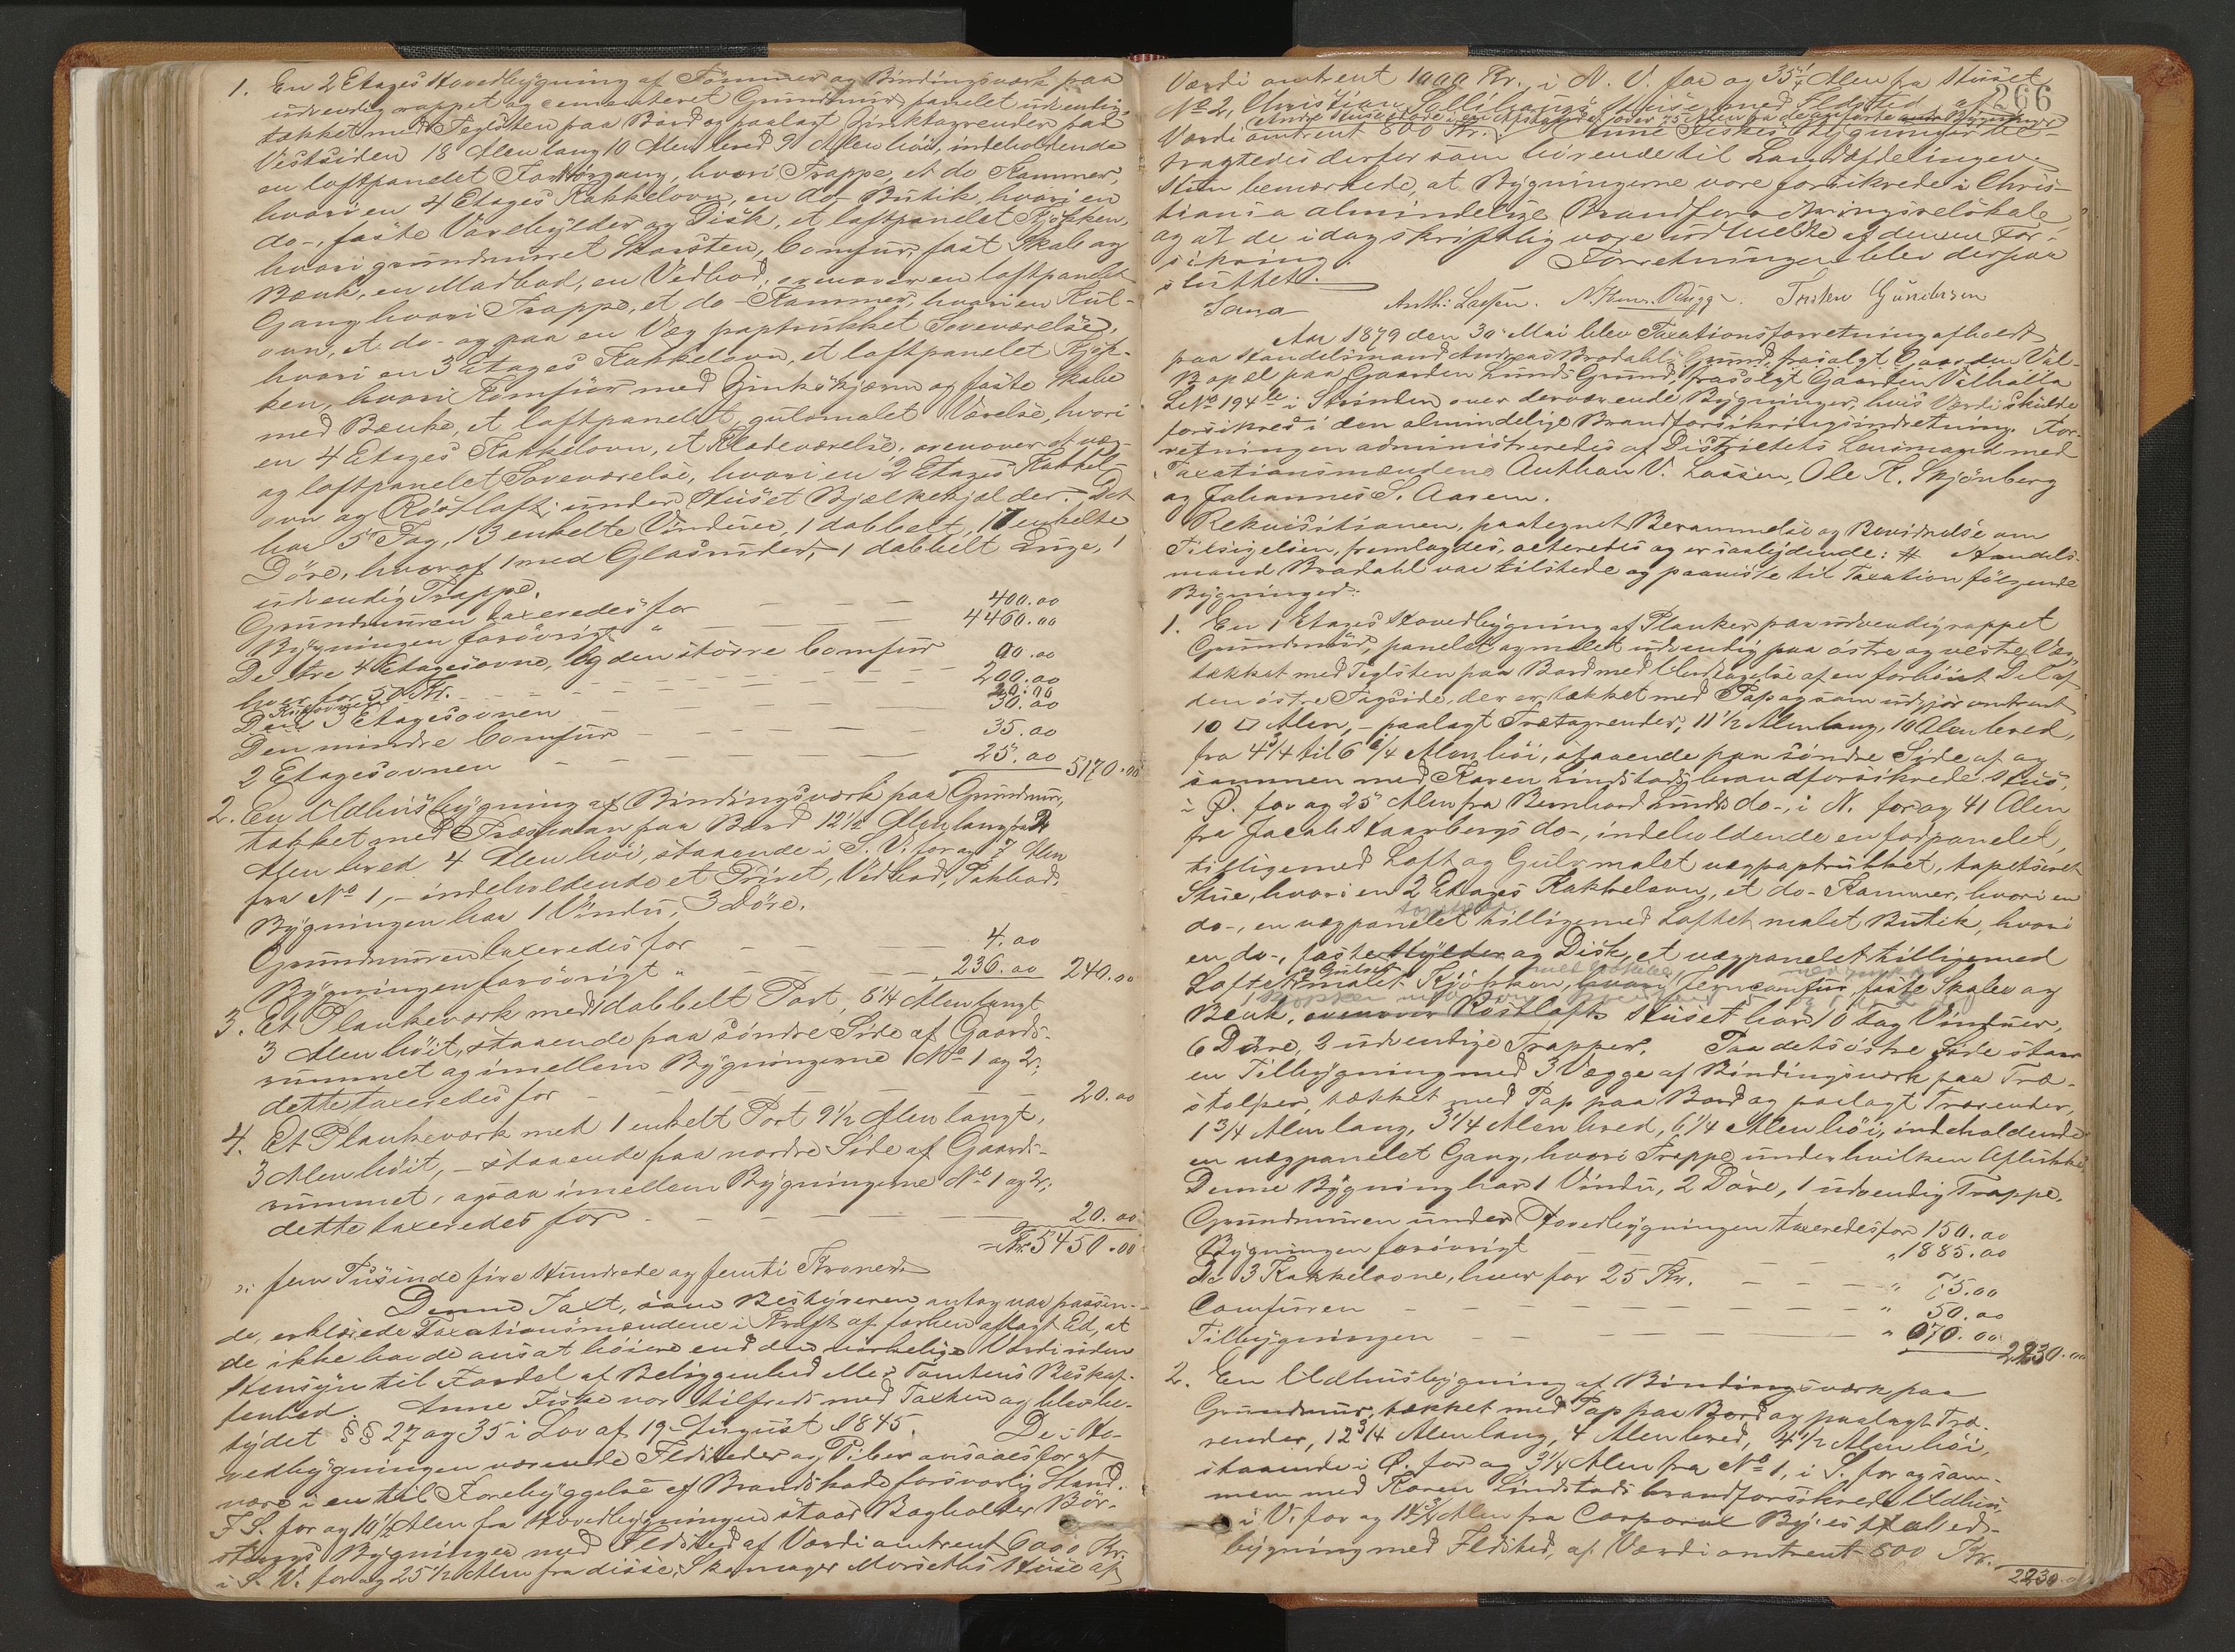 1. En 2 Etages Hovedbygning af Tömmer og Bindingsværk paa
udvendig rappet og cementeret Grundmur, panelet udvendig,
tækket med Teglsten paa Bord og paalagt Zinktagrender paa
Vestsiden 18 Alen lang 10 Alen bred 9 Alen höi, indeholdende
en loftpanelet Forstugang, hvori Trappe, et do Kammer,
hvori en 4 Etages Kakkelovn, en do- Butik, hvori en
do-, faste Varehylder og Disk, et loftpanelet Kjökken,
hvori grundmuret Skorsten, Comfur, fast Skab og
Bænk, en Madbod, en Vedbod, ovenover en loftpanelet
Gang hvori Trappe, et do- Kammer, hvori en Kul-
ovn, et do- og paa en Væg paptrukket Soveværelse,
hvori en 3 Etages Kakkelovn, et loftpanelet Kjök-
ken, hvori Komfur med Zinkskjærm og faste Skabe
med Bænke, et loftpanelet, gulvmalet Værelse, hvori
en 4 Etages Kakkelovn, et Klædeværelse, ovenover et væg-
og loftpanelet Soveværelse, hvori en 2 Etages Kakkel-
ovn og Röstloft; under Huset Bjælkekjælder. - Det
har 5 Fag, 13 enkelte Vinduer, 1 dobbelt, 17 enkelte
Döre, hvoraf 1 med Glasruder, 1 dobbelt Luge, 1
udvendig Trappe.
Grundmuren taxeredes for — — — 400.00
Bygningen forövrigt " — — — 4460.00
De tre 4 Etagesovne, og den större Comfur 90.00
hver for 50 Kr. — — — 200.00
Kulovnen 20.00
Den 3 Etagesovnen — — — 30.00
Den mindre Comfur — — — 35.00
2 Etagesovnen — — — 25.00 5170.00
2. En Udhusbygning af Bindingsværk paa Grundmur,
tækket med Træspaan paa Bord 12 1/2 Alen lang
Alen bred 4 Alen höi, staaende i S. V. for og 7 Alen
fra No 1, - indeholdende et Privet, Vedbod, Pakbod.
Bygningen har 1 Vindu, 3 Döre.
Grundmuren taxeredes for — — 4.00
Bygningen forövrigt " — — 236.00 240.00
3. Et Plankeværk med dobbelt Port, 6 1/4 Alen langt
3 Alen höit, staaende paa söndre Side af Gaards-
rummet og imellem Bygningerne No 1 og 2;
dette taxeredes for — — — 20.00
4. Et Plankeværk med 1 enkelt Port 9 1/2 Alen langt,
3 Alen höit, - staaende paa nordre Side af Gaards-
rummet, ogsaa imellem Bygningerne No 1 og 2;
dette taxeredes for — — — 20.00
= Kr. 5450.00
ɔ: fem Tusinde fire Hundrede og femti Kroner.
Denne Taxt, som Bestyreren antog var passen-
de, erklærede Taxationsmændene i Kraft af forhen aflagt Ed, at
de ikke havde ansat höiere end den virkelige Værdi uden
Hensyn til Fordel af Beliggenhed eller Tomtens Beskaf-
fenhed. Anne Fiske var tilfreds med Taxten og blev be-
tydet §§ 27 og 35 i Lov af 19 August 1845. De i Ho-
vedbygningen værende Ildsteder og Piber ansaaes for at
være i en til Forebyggelse af Brandskade forsvarlig Stand.
I S. for og 10 1/2 Alen fra Hovedbygningen staar Bagholder Bör-
stings Bygninger med Ildsted af Værdi omtrent 6000 Kr.
i S. V. for og 25 1/2 Alen fra disse, Skomager Morseths Huse af
266
Værdi omtrent 1000 Kr., i N. V. for og 35 1/2 Alen fra Huset
No 2, Christian Huse, med Ildsted, af
Værdi omtrent 800 Kr. Anne Fiskes Bygninger be-
tragtedes derfor som hörende til Landafdelingen.
Hun bemærkede, at Bygningerne vare forsikrede i Chris-
tiania almindelige Brandforsikringsselskab
og at de idag skriftlig vare udmeldte af denne For-
sikring. Forretningen blev derpaa
sluttet.
Anth: Lassen.
Aar 1879 den 30 Mai blev Taxationsforretning afholdt
paa Handelsmand Andreas Brodahls Grund, frasolgt Gaarden Val-
Bopæl paa Gaarden Lunds Grund, frasolgt Gaarden Valhalla
Le No 194 i Strinden over derværende Bygninger, hvis Værdi skulde
forsikres i den almindelige Brandforsikringsindretning. For-
retningen administreredes af Distriktets Lensmand med
Taxationsmændene Anthon V. Lassen, Ole K. Skjönberg
og Johannes S. Aasem.
Rekvisitionen, paategnet Berammelse og Bevidnelse om
Tilsigelsen, fremlagdes, acteredes og er saalydende: # Handels-
mand Brodahl var tilstede og paaviste til Taxation fölgende
Bygninger:
1. En 1 Etages Hovedbygning af Planker paa udvendig rappet
Grundmur, panelet og malet udvendig paa östre og vestre Væg,
tækket med Teglsten paa Bord med Undtagelse af en forhöiet Del af
den östre Tagside, der er tækket med Pap og som udgjör omtrent
10 □ Alen, - paalagt Trætagrender, 11 1/2 Alen lang, 10 Alen bred,
fra 4 3/4 til 6 1/4 Alen höi, staaende paa söndre Side af og
sammen med Karen Lindstads brandforsikrede Hus,
i Ö. for og 25 Alen fra Bernhard Lunds do-, i N. for og 41 Alen
fra Jacob Skaarbergs do-, indeholdende en panelet,
tilligemed Loft og Gulv malet vægpaptrukket, tapetseret
Stue, hvori en 2 Etages Kakkelovn, et do- Kammer, hvori en
do-, en vægpanelet tilligemed Loftet malet Butik, hvori
en do-, faste Hylder og Disk, et vægpanelet tilligemed
Loftet og Gulvet malet Kjökken, hvori Jerncomfur, faste Skabe og
Benk, ovenover Röstloft. Huset har 10 Fag Vinduer,
6 Döre, 2 udvendige Trapper. Paa dets östre Side staar
en Tilbygning med 3 Vægge af Bindingsværk paa Træ-
stolper, tækket med Pap paa Bord og paalagt Trærender,
1 3/4 Alen lang, 3 1/4 Alen bred, 6 1/4 Alen höi, indeholdende
en vægpanelet Gang, hvori Trappe under hvilken Aflukke.
Denne Bygning har 1 Vindu, 2 Döre, 1 udvendig Trappe.
Grundmuren under Hovedbygningen taxeredes for 150.00
Bygningen forövrigt " 1885.00
De 3 Kakkelovne, hver for 25 Kr. — — — " 75.00
Comfuren — — — — — — " 50.00
Tilbygningen — — — — — " 070.00
2230.00
2. En Udhusbygning af Bindingsværk paa
Grundmur, tækket med Pap paa Bord og paalagt Træ-
render, 12 3/4 Alen lang, 4 Alen bred, 4 1/2 Alen höi,
staaende i Ö. for og 3 1/4 Alen fra No 1, i S. for og sam-
men med Karen Lindstads brandforsikrede Udhus,
i V. for og 14 3/4 Alen fra Corporal Byes Hoved-
bygning med Ildsted, af Værdi omtrent 800 Kr.
2230.00